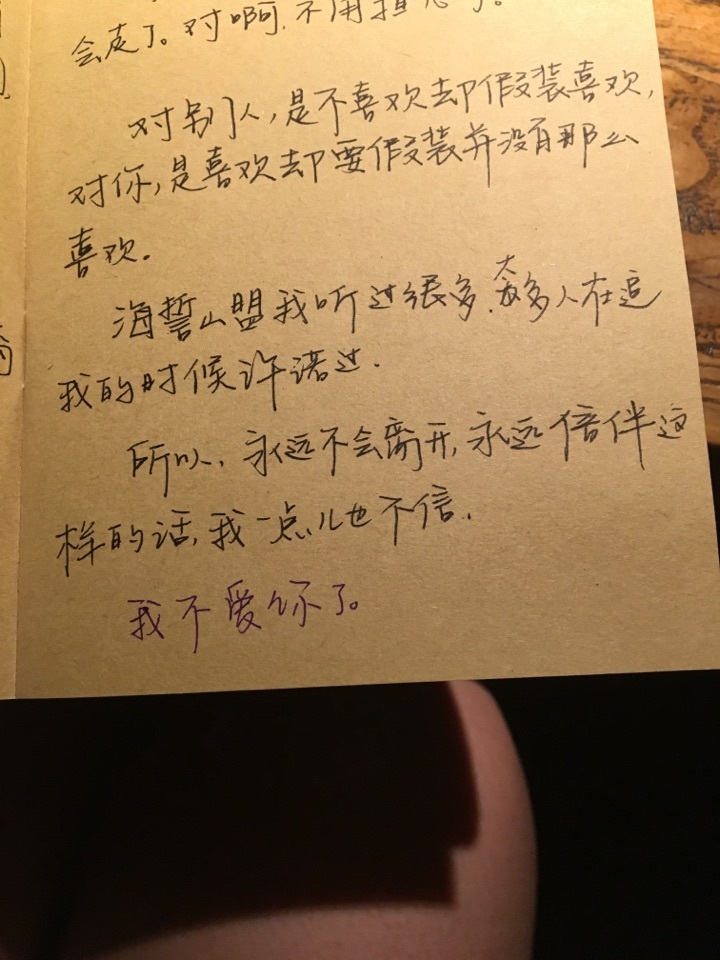 会走了。对啊，不用担心了。
对别人，是不喜欢却假装喜欢，
对你，是喜欢却要假装并没有那么
喜欢。
海誓山盟我听过很多，太多人在追
我的时候许诺过.
所以、永远不会离开，永远倍伴这
样的话，我一点儿也不信.
我不爱你了。